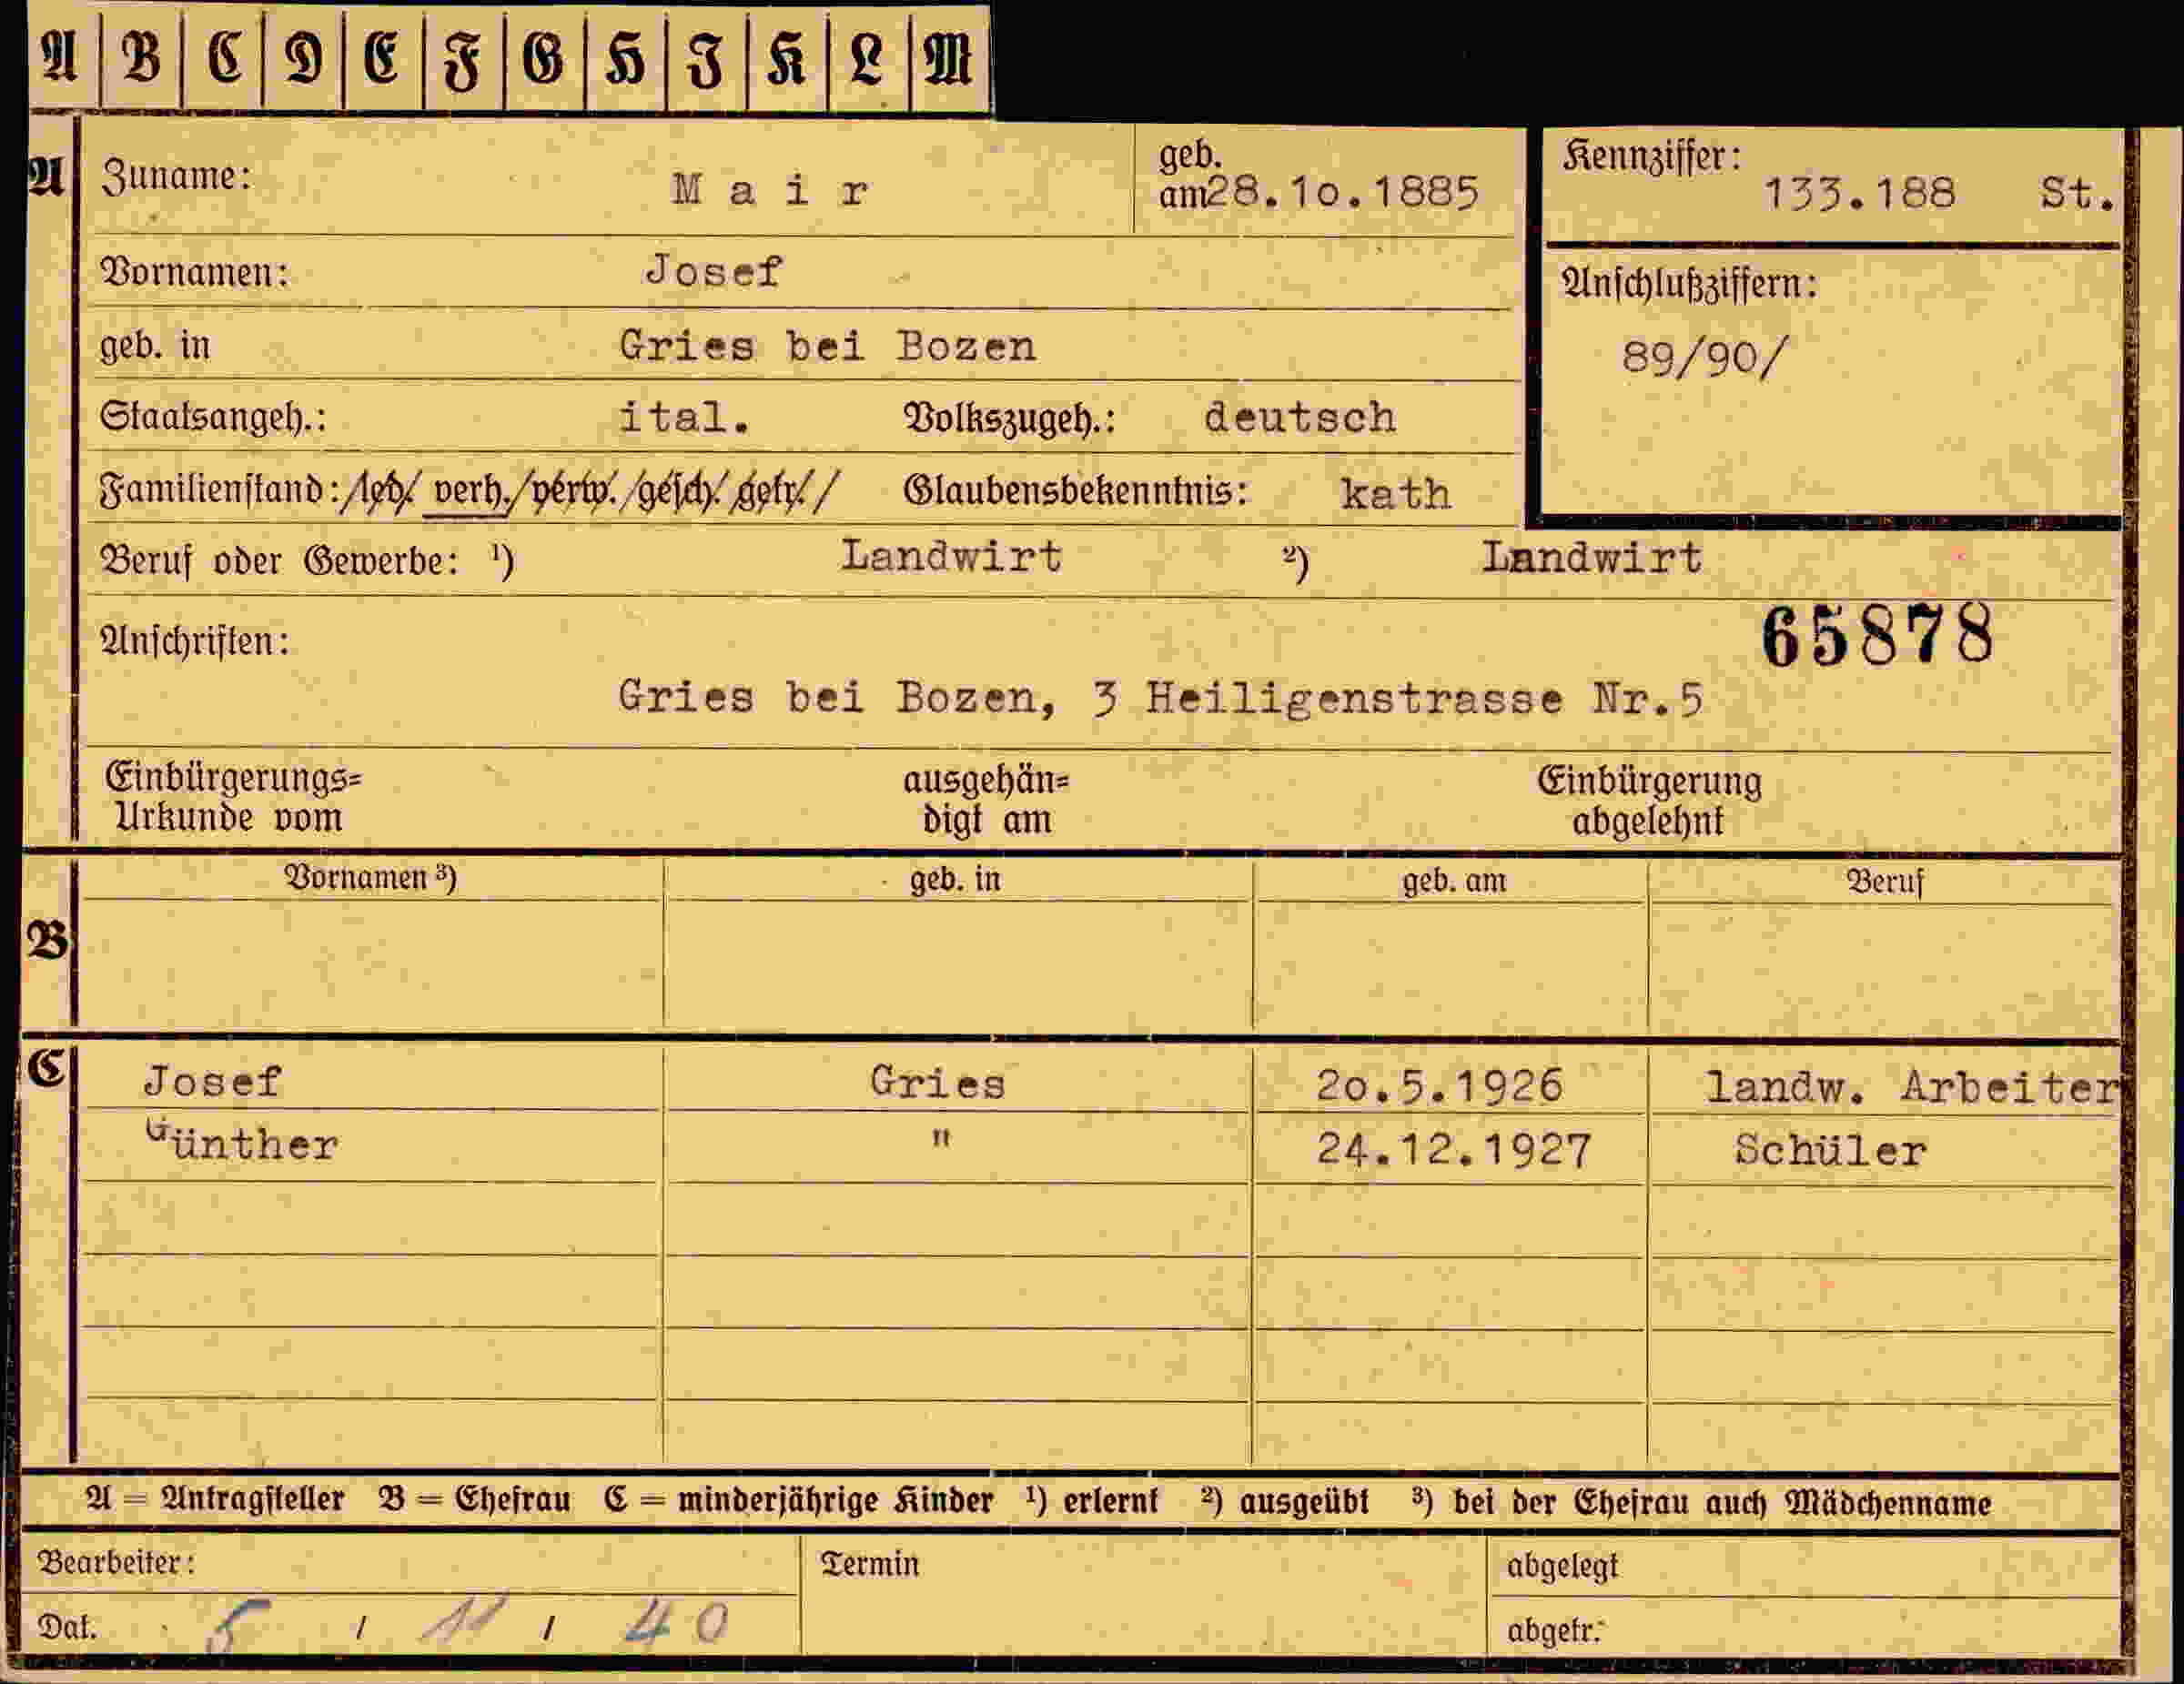 A B C D E F G H I K L M
A Zuname: Mair geb. am 28.10.1885 Kennziffer: 133.188 St.
Vornamen: Josef Anschlußziffern:
geb. in Gries bei Bozen 89/90/
Staatsangeh.: ital. Volkszugeh.: deutsch
Familienstand: /led/ verh./verw./gesch./getr./ Glaubensbekenntnis: kath
Beruf oder Gewerbe: ¹) Landwirt ²) Landwirt
Anschriften: 65878
Gries bei Bozen, 3 Heiligenstrasse Nr.5
Einbürgerungs= ausgehän= Einbürgerung
Urkunde vom digt am abgelehnt
Vornamen ³) geb. in geb. am Beruf
B
C Josef Gries 20.5.1926 landw. Arbeiter
Günther " 24.12.1927 Schüler
A = Antragsteller B = Ehefrau C = minderjährige Kinder ¹) erlernt ²) ausgeübt ³) bei der Ehefrau auch Mädchenname
Bearbeiter: Termin abgelegt
Dat. 5 / 11 / 40 abgetr.